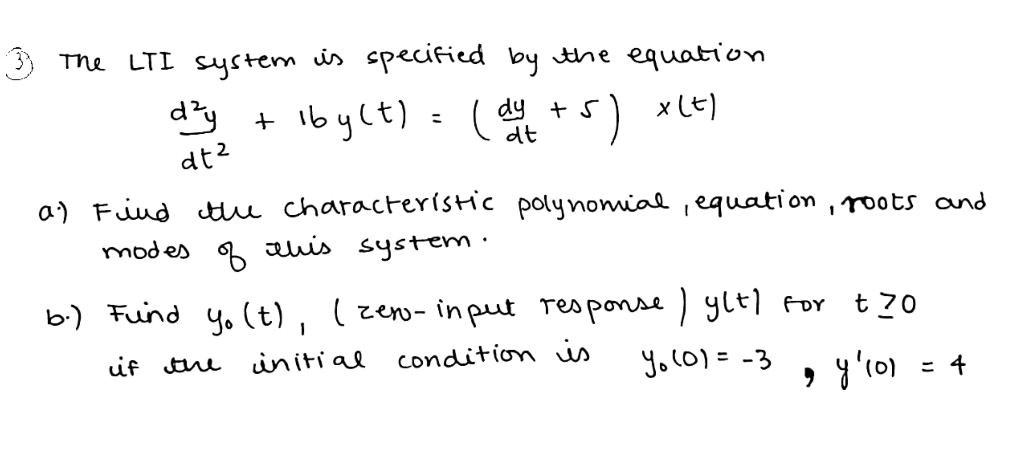 ③ The LTI system is specified by the equation
d²y/dt² + 16y(t) = (dy/dt + 5) x(t)
a) Find the characteristic polynomial, equation, roots and
modes of this system.
b.) Find y₀(t), (zero-input response) y(t) for t ≥ 0
if the initial condition is y₀(0) = -3 , y'(0) = 4